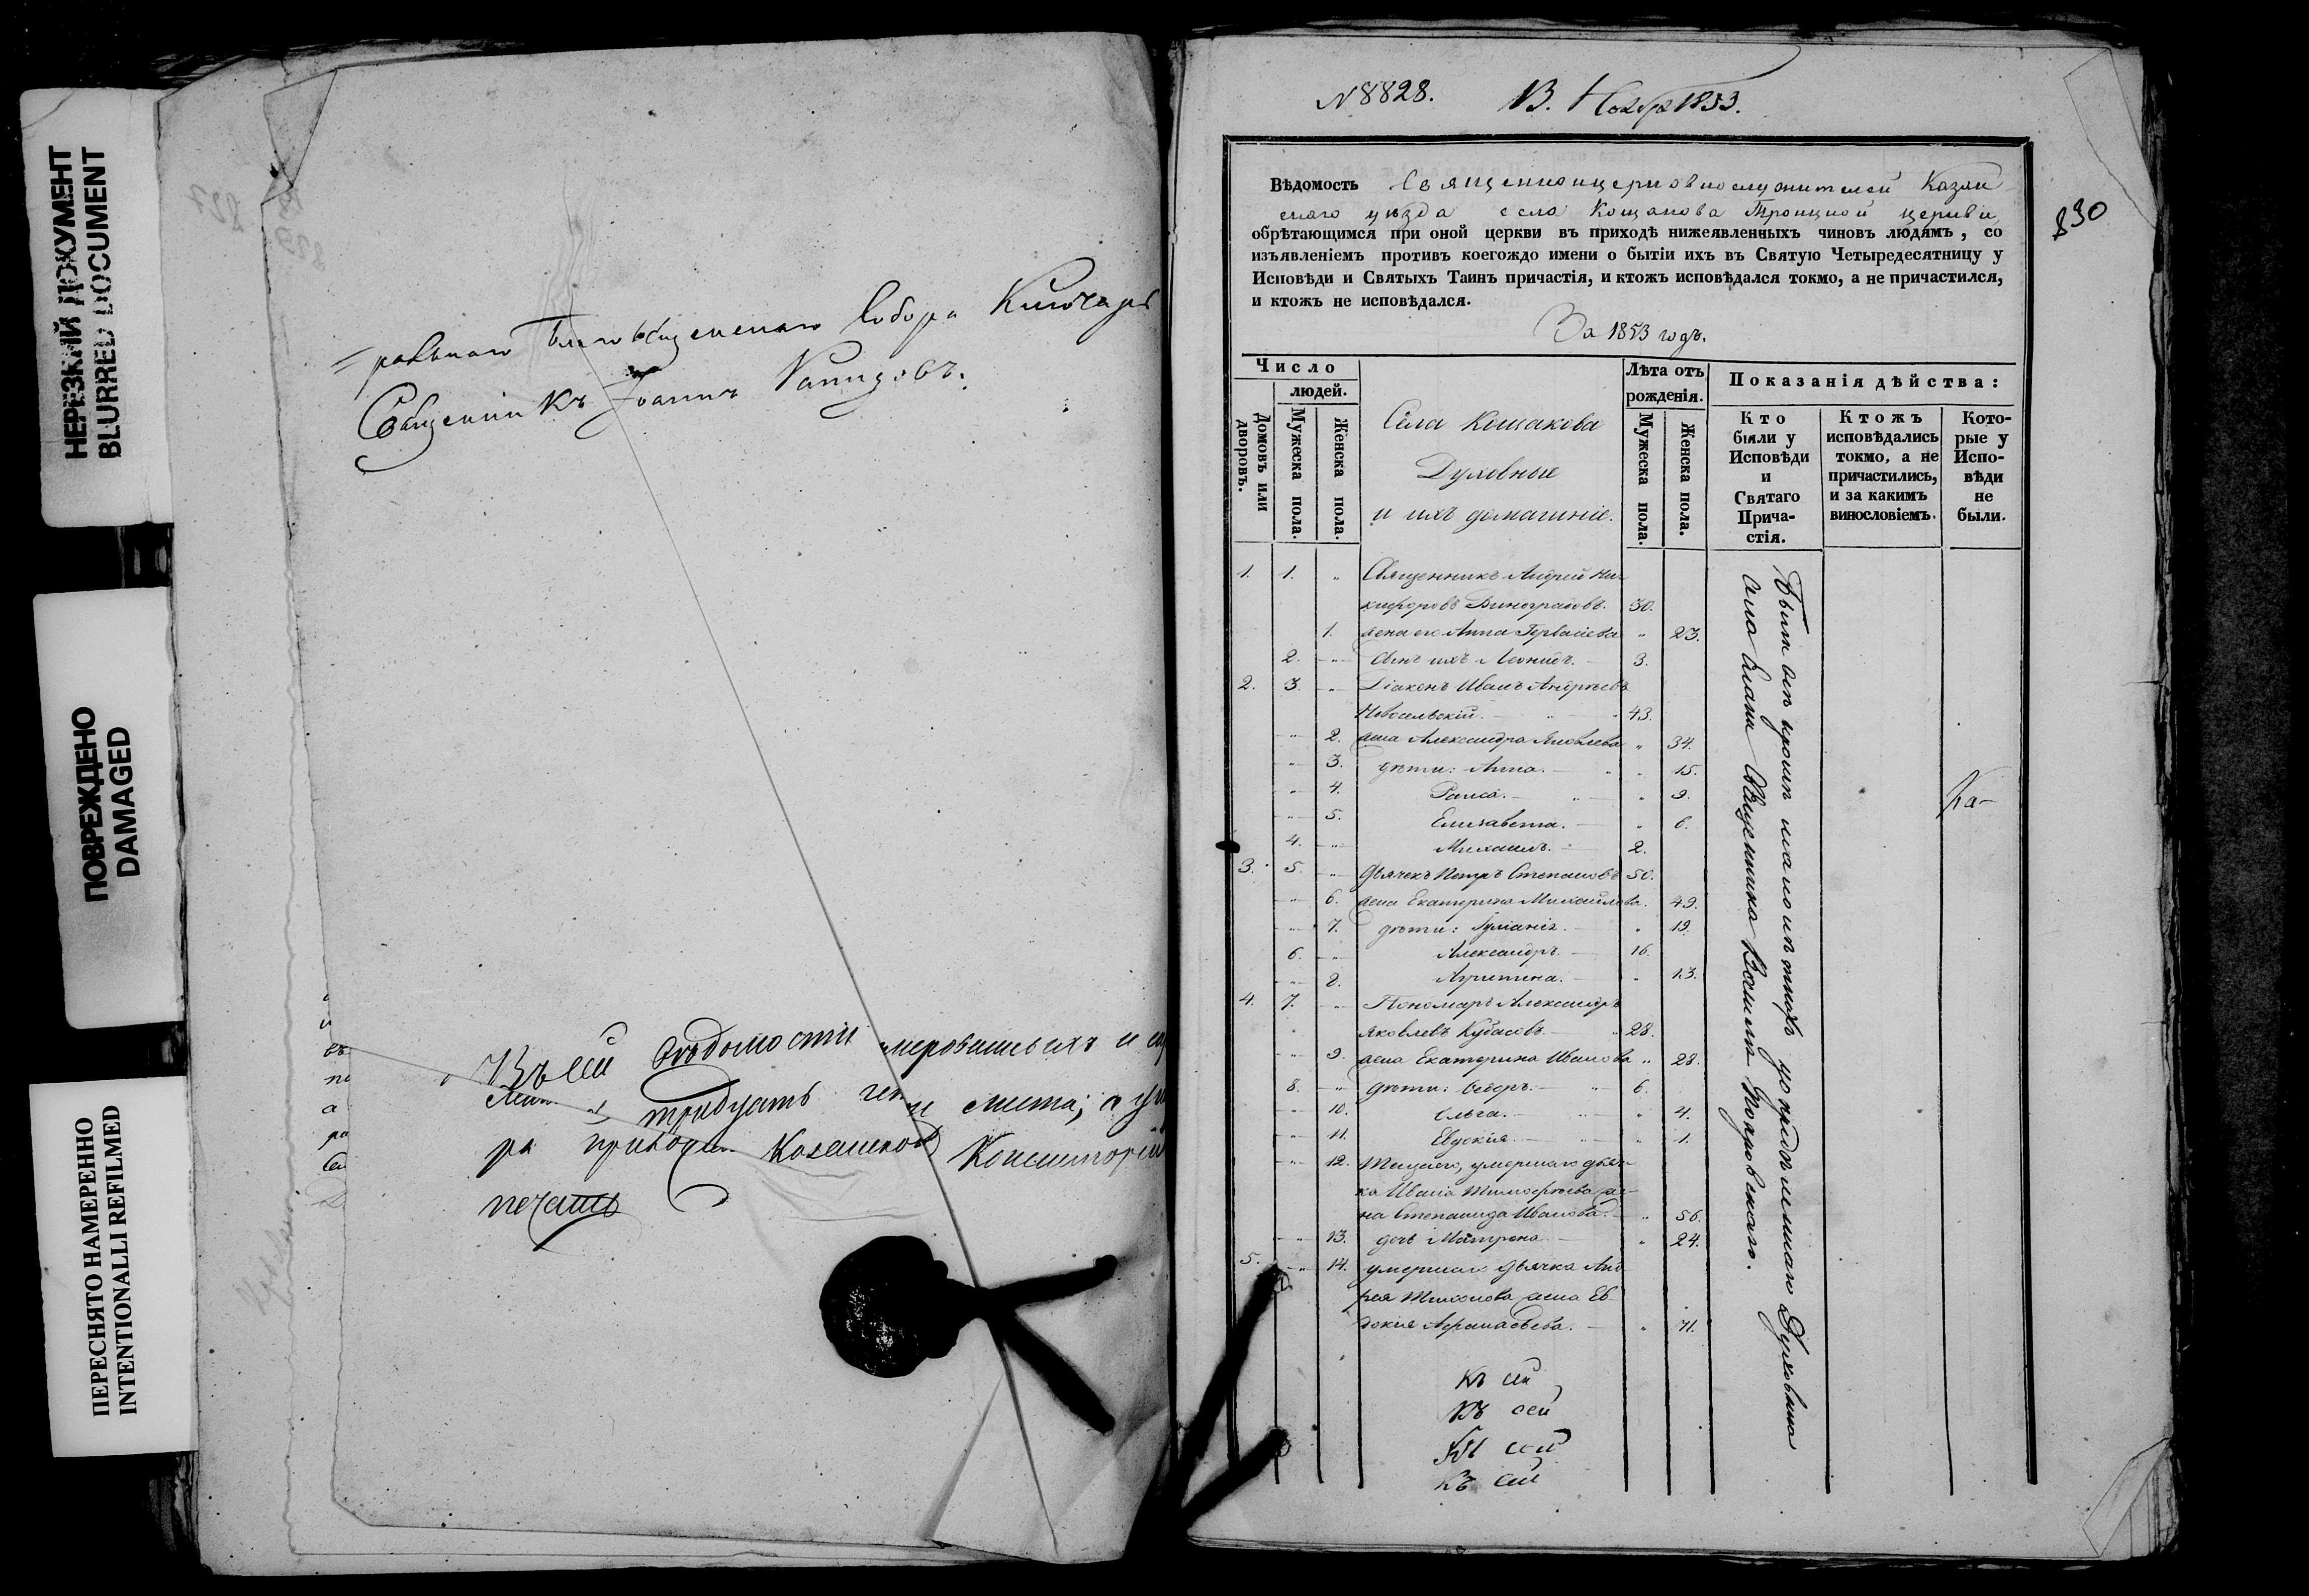 НЕРЕЗКИЙ ДОКУМЕНТ
BLURRED DOCUMENT
ПОВРЕЖДЕНО
DAMAGED
ПЕРЕСНЯТО НАМЕРЕННО
INTENTIONALLI REFILMED
ральнаго Благовѣщенскаго Собора Ключарь
Священникъ Іоаннъ
Къ сей вѣдомости
тридцать листа;
Казанской Консисторіи
печать
N 8828. 13. Ноября 1853.
830
Вѣдомость Священноицерковнослужителей Казан
скаго уѣзда села Кощакова Троицкой церкви
обрѣтающимся при оной церкви въ приходѣ нижеявленныхъ чиновъ людямъ, со
изъявленіемъ противъ коегождо имени о бытіи ихъ въ Святую Четыредесятницу у
Исповѣди и Святыхъ Таинъ причастія, и ктожъ исповѣдался токмо, а не причастился,
и ктожъ не исповѣдался.
За 1853 годъ.
Число
людей.
Домовъ или дворовъ.
Мужеска пола.
Женска пола.
Села Кощакова
Духовные
и ихъ домашніе.
Лѣта отъ
рожденія.
Мужеска пола.
Женска пола.
Показанія дѣйства:
Кто
были у
Исповѣди
и
Святаго
Прича-
стія.
Ктожъ
исповѣдались
токмо, а не
причастились,
и за какимъ
винословіемъ.
Кото-
рые у
Испо-
вѣди
не
были.
1. 1. " Священникъ Андрей Ни-
кифоровъ Виноградовъ. 30.
1. жена его Анна Гервасіева " 23.
2. " сынъ ихъ Леонидъ. 3.
2. 3. " Діаконъ Иванъ Андреевъ
Новосельскій. 43.
" 2. жена Александра Яковлева " 34.
" 3. дѣти: Анна. " 15.
" 4. Раиса. " 9.
" 5. Елизавета. " 6.
4. " Михаилъ. 2.
3. 5. " Дьячекъ Петръ Степановъ 50.
" 6. жена Екатерина Михайлова. 49.
" 7. дѣти: " 19.
6. " Александръ. 16.
" 8. " 13.
4. 7. " Пономарь Александръ
Яковлевъ Кубасовъ. 28.
" 9. жена Екатерина Иванова " 28.
8. " дѣти: Ѳедоръ. " 6.
" 10. Ольга. " 4.
" 11. Евдокія. " 1.
" 12. умершаго дьяч-
ка Ивана Тимоѳеева же-
на Степанида Иванова. " 56.
" 13. дочь Матрона. " 24.
5. " 14. умершаго дьячка Анд
рея жена Ев
докія Аѳанасьева. " 71.
села Священника Василія Покровскаго.
Къ сей
Къ сей
Къ сей
Къ сей